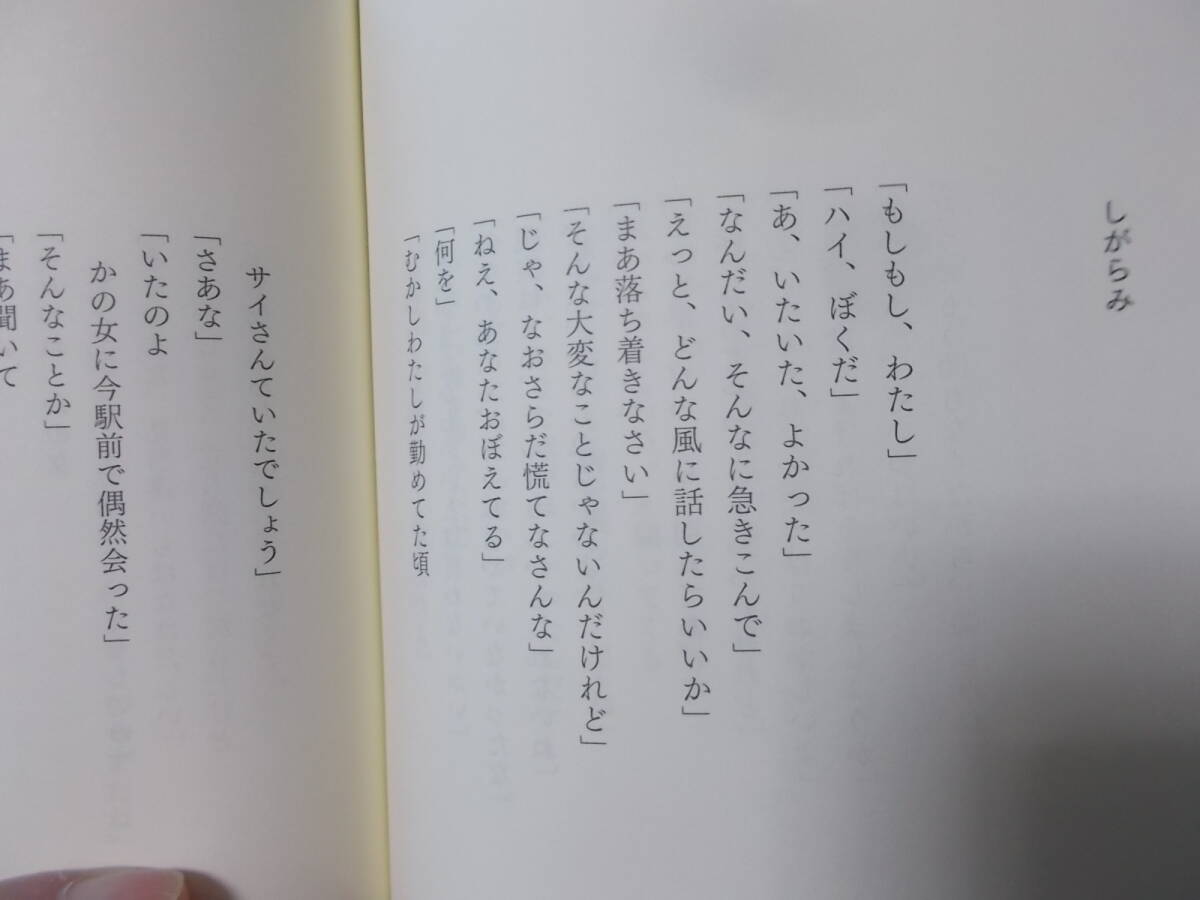 しがらみ
「もしもし、わたし」
「ハイ、ぼくだ」
「あ、いたいた、よかった」
「なんだい、そんなに急きこんで」
「えっと、どんな風に話したらいいか」
「まあ落ち着きなさい」
「そんな大変なことじゃないんだけれど」
「じゃ、なおさらだ慌てなさんな」
「ねえ、あなたおぼえてる」
「何を」
「むかしわたしが勤めてた頃
サイさんていたでしょう」
「さあな」
「いたのよ
かの女に今駅前で偶然会った」
「そんなことか」
「まあ聞いて